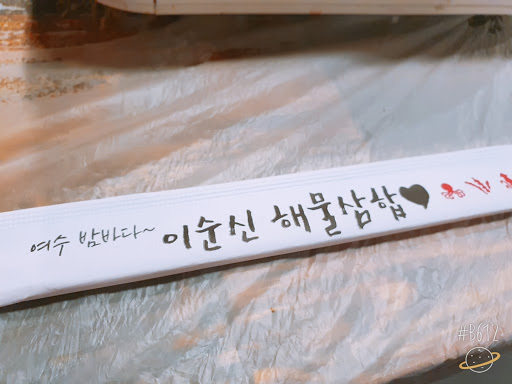 여수 밤바다~ 이순신 해물삼합♥
#B612